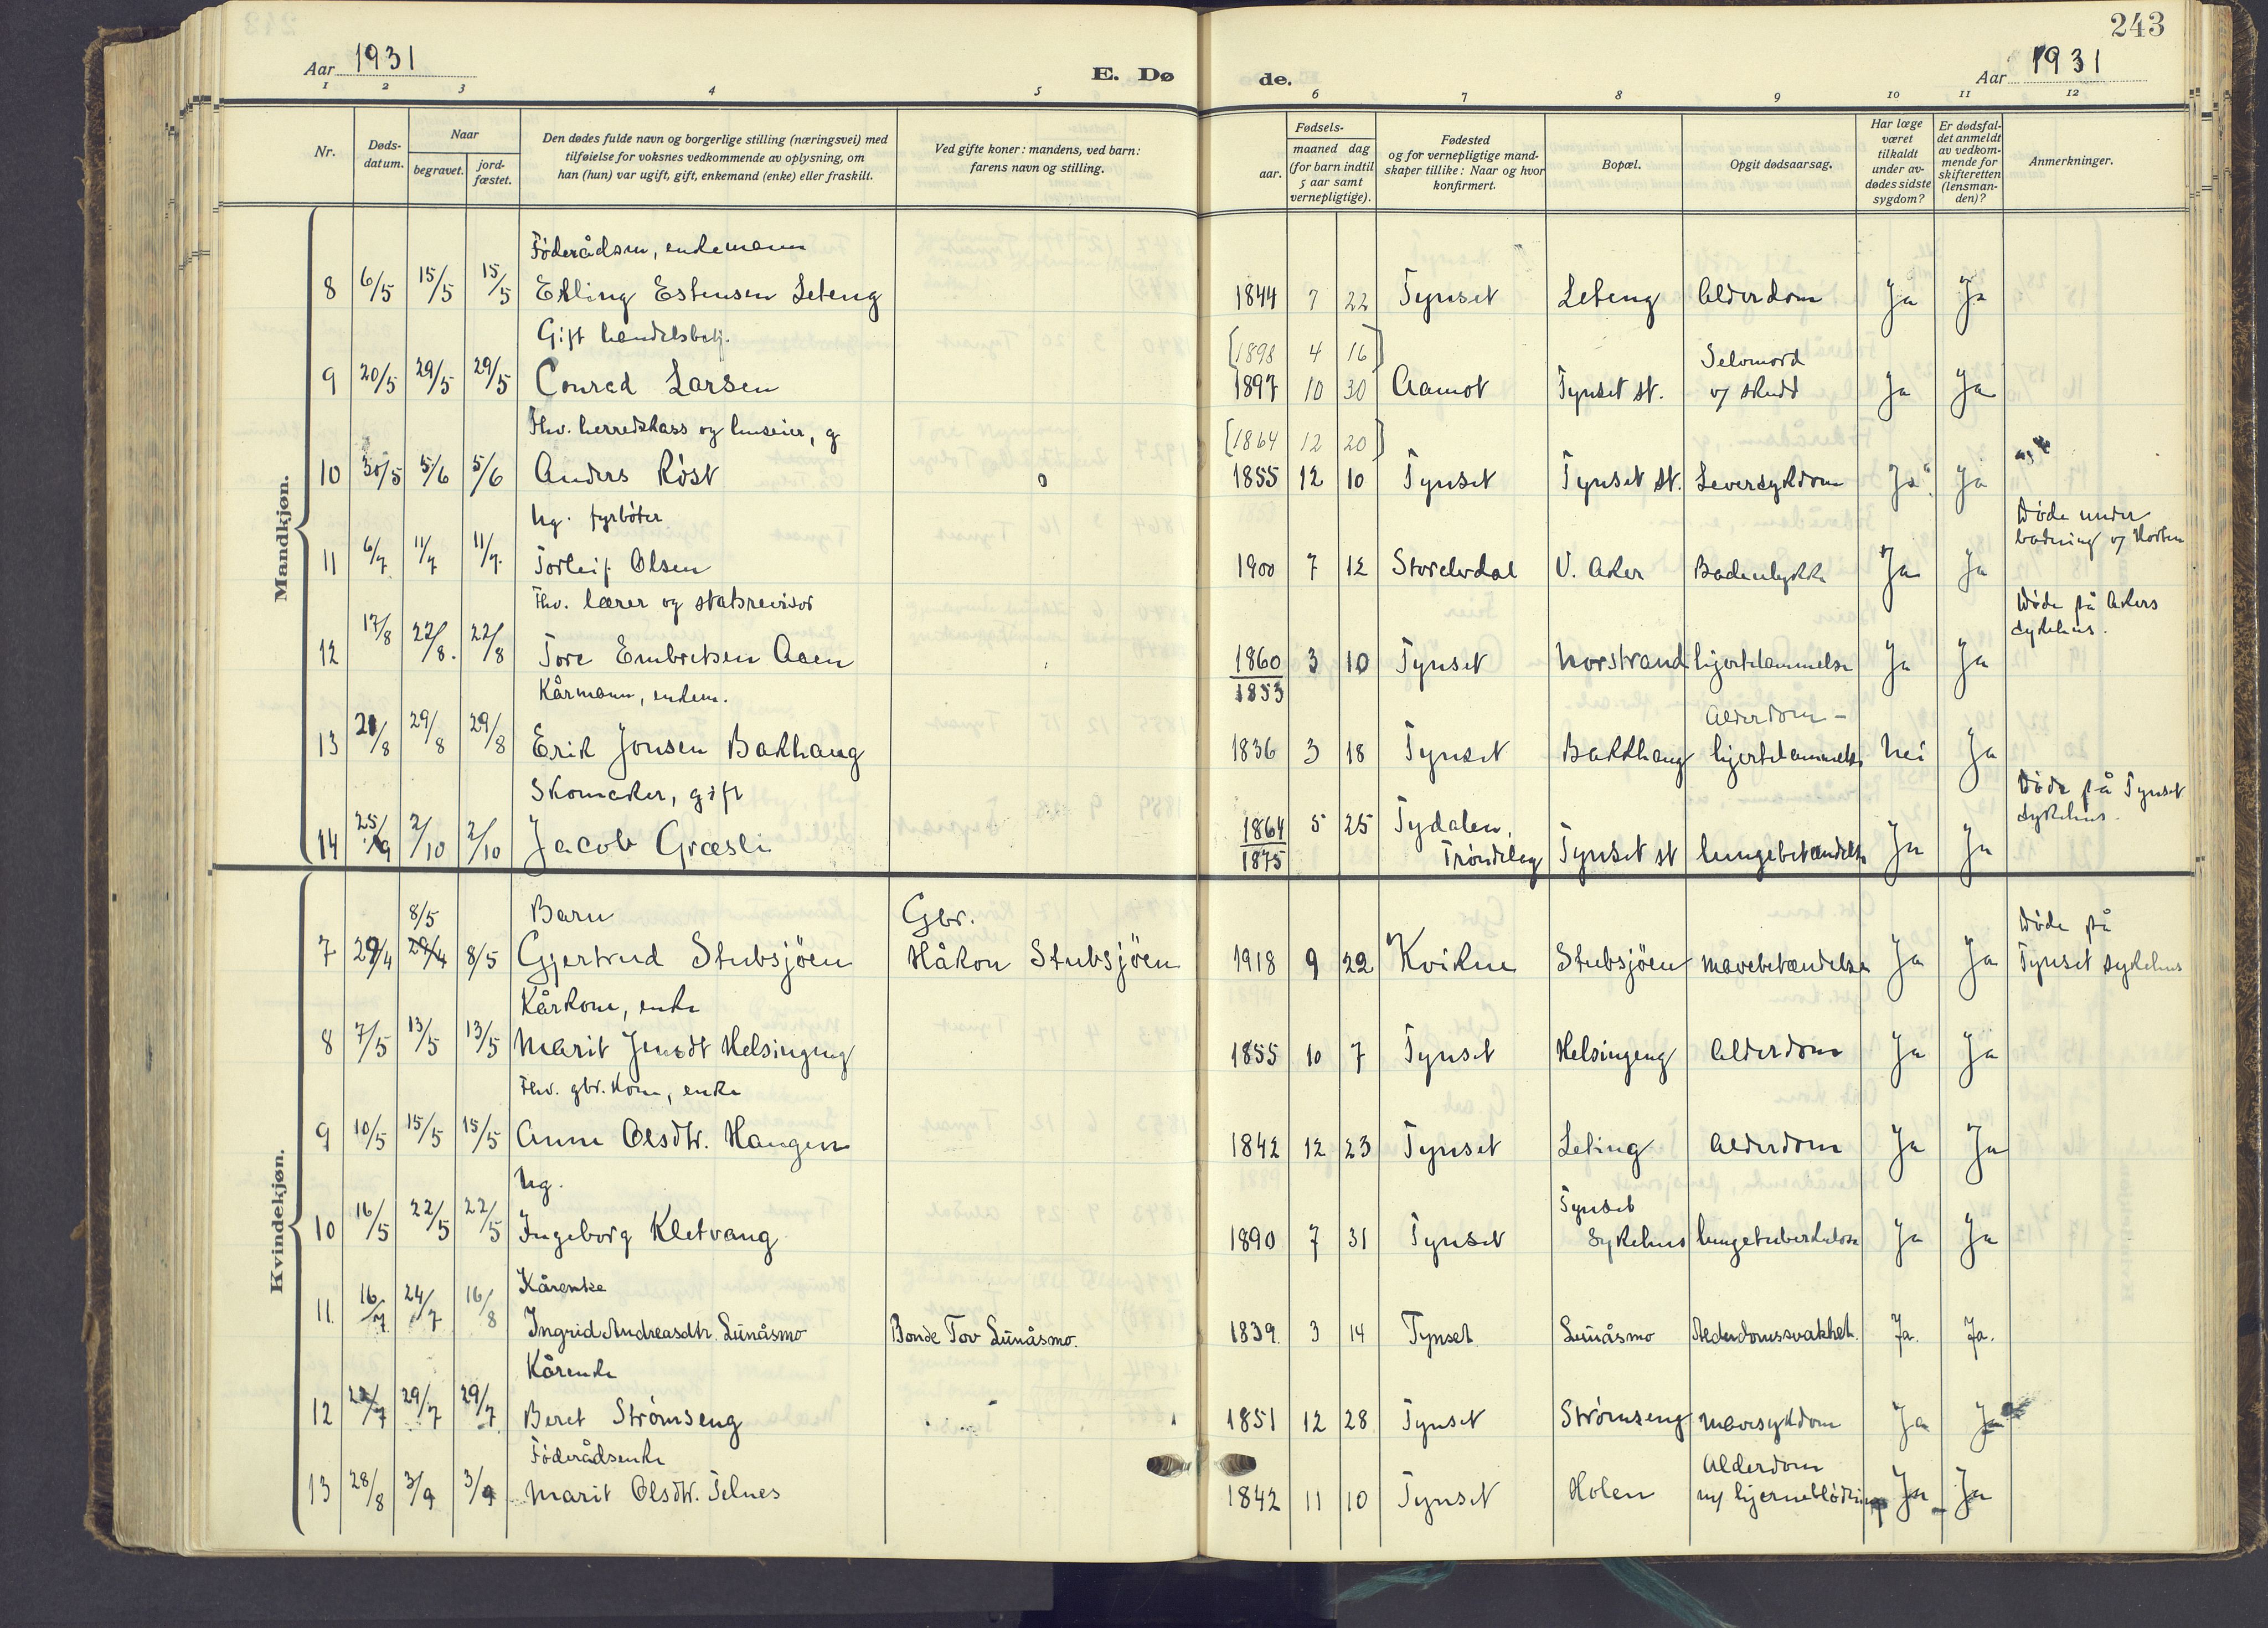 243
Aar 1931
E. Dø de.
Aar 1931
1 2 3 4 5 6 7 8 9 10 11 12
Nr.
Dødsdatum.
Naar
begravet.
jordfæstet.
Den dødes fulde navn og borgerlige stilling (næringsvei) med
tilføielse for voksnes vedkommende av oplysning, om
han (hun) var ugift, gift, enkemand (enke) eller fraskilt.
Ved gifte koner: mandens, ved barn:
farens navn og stilling.
Fødsels-
aar.
maaned dag
(for barn indtil
5 aar samt
vernepligtige).
Fødested
og for vernepligtige mandskaper tillike: Naar og hvor
konfirmert.
Bopæl.
Opgit dødsaarsag.
Har læge
været
tilkaldt
under avdødes sidste
sygdom?
Er dødsfaldet anmeldt
av vedkommende for
skifteretten
(lensmanden)?
Anmerkninger.
Mandkjøn.
Føderådsm, enkemann
8 6/5 15/5 15/5 Erling Estensen Leteng 1844 7 22 Tynset Leteng Alderdom Ja Ja
Gift handelsbetj. [1898 4 16] Selvmord
9 20/5 29/5 29/5 Conrad Larsen 1897 10 30 Aamot Tynset st. v/ skudd Ja Ja
Fhv. herredskass og huseier, g [1864 12 20]
10 30/5 5/6 5/6 Anders Røst 1855 12 10 Tynset Tynset st. Leversykdom Ja Ja
Ug. fyrbøter Døde under
badning v/ Horten
11 6/7 11/7 11/7 Torleif Olsen 1900 7 12 Storelvdal V. Aker Badeulykke Ja Ja
Fhv. lærer og statsrevisor Døde på Akers
sykehus.
12 17/8 22/8. 22/8 Tore Embretsen Aaen 1860 3 10 Tynset Norstrand hjertelammelse Ja Ja
1853
Kårmann, enkem. Alderdom –
13 21/8 29/8 29/8 Erik Jonsen Bakhaug 1836 3 18 Tynset Bakkhaug hjertelammelse Nei Ja
Skomaker, gift Døde på Tynset
sykehus.
14 25/9 2/10 2/10 Jacob Græsli 1864 5 25 Tydalen, Trøndelag Tynset st lungebetændelse Ja Ja
1875
Kvindekjøn.
8/5 Barn Gbr. Døde på
7 29/4 29/4 8/5 Gjertrud Stubsjöen Håkon Stubsjöen 1918 9 22 Kvikne Stubsjöen mavebetændelse Ja Ja Tynset sykehus
Kårkone, enke
8 7/5 13/5 13/5 Marit Jensdt Helsingeng 1855 10 7 Tynset Helsingeng Alderdom Ja Ja
Fhv. gbr. kone, enke
9 10/5 15/5 15/5 Anne Olsdtr. Haugen 1842 12 23 Tynset Leteng Alderdom Ja Ja
Ug. Tynset
10 16/5 22/5 22/5 Ingeborg Kletvang 1890 7 31 Tynset Sykehus lungetuberkulose Ja Ja
Kårenke
11. 16/7 24/7 16/8 Ingrid Andreasdtr. Lunåsmo Bonde Tov Lunåsmo. 1839. 3 14 Tynset Lunåsmo Alderdomssvakhet. Ja. Ja.
Kårenke
12 22/7 29/7 29/7 Beret Strømseng 1851 12 28 Tynset Strømseng Mavesykdom Ja Ja
Føderådsenke Alderdom
13 28/8 3/9 3/9 Marit Olsdtr. Telnes 1842 11 10 Tynset Holen m/ hjerneblödning Ja Ja